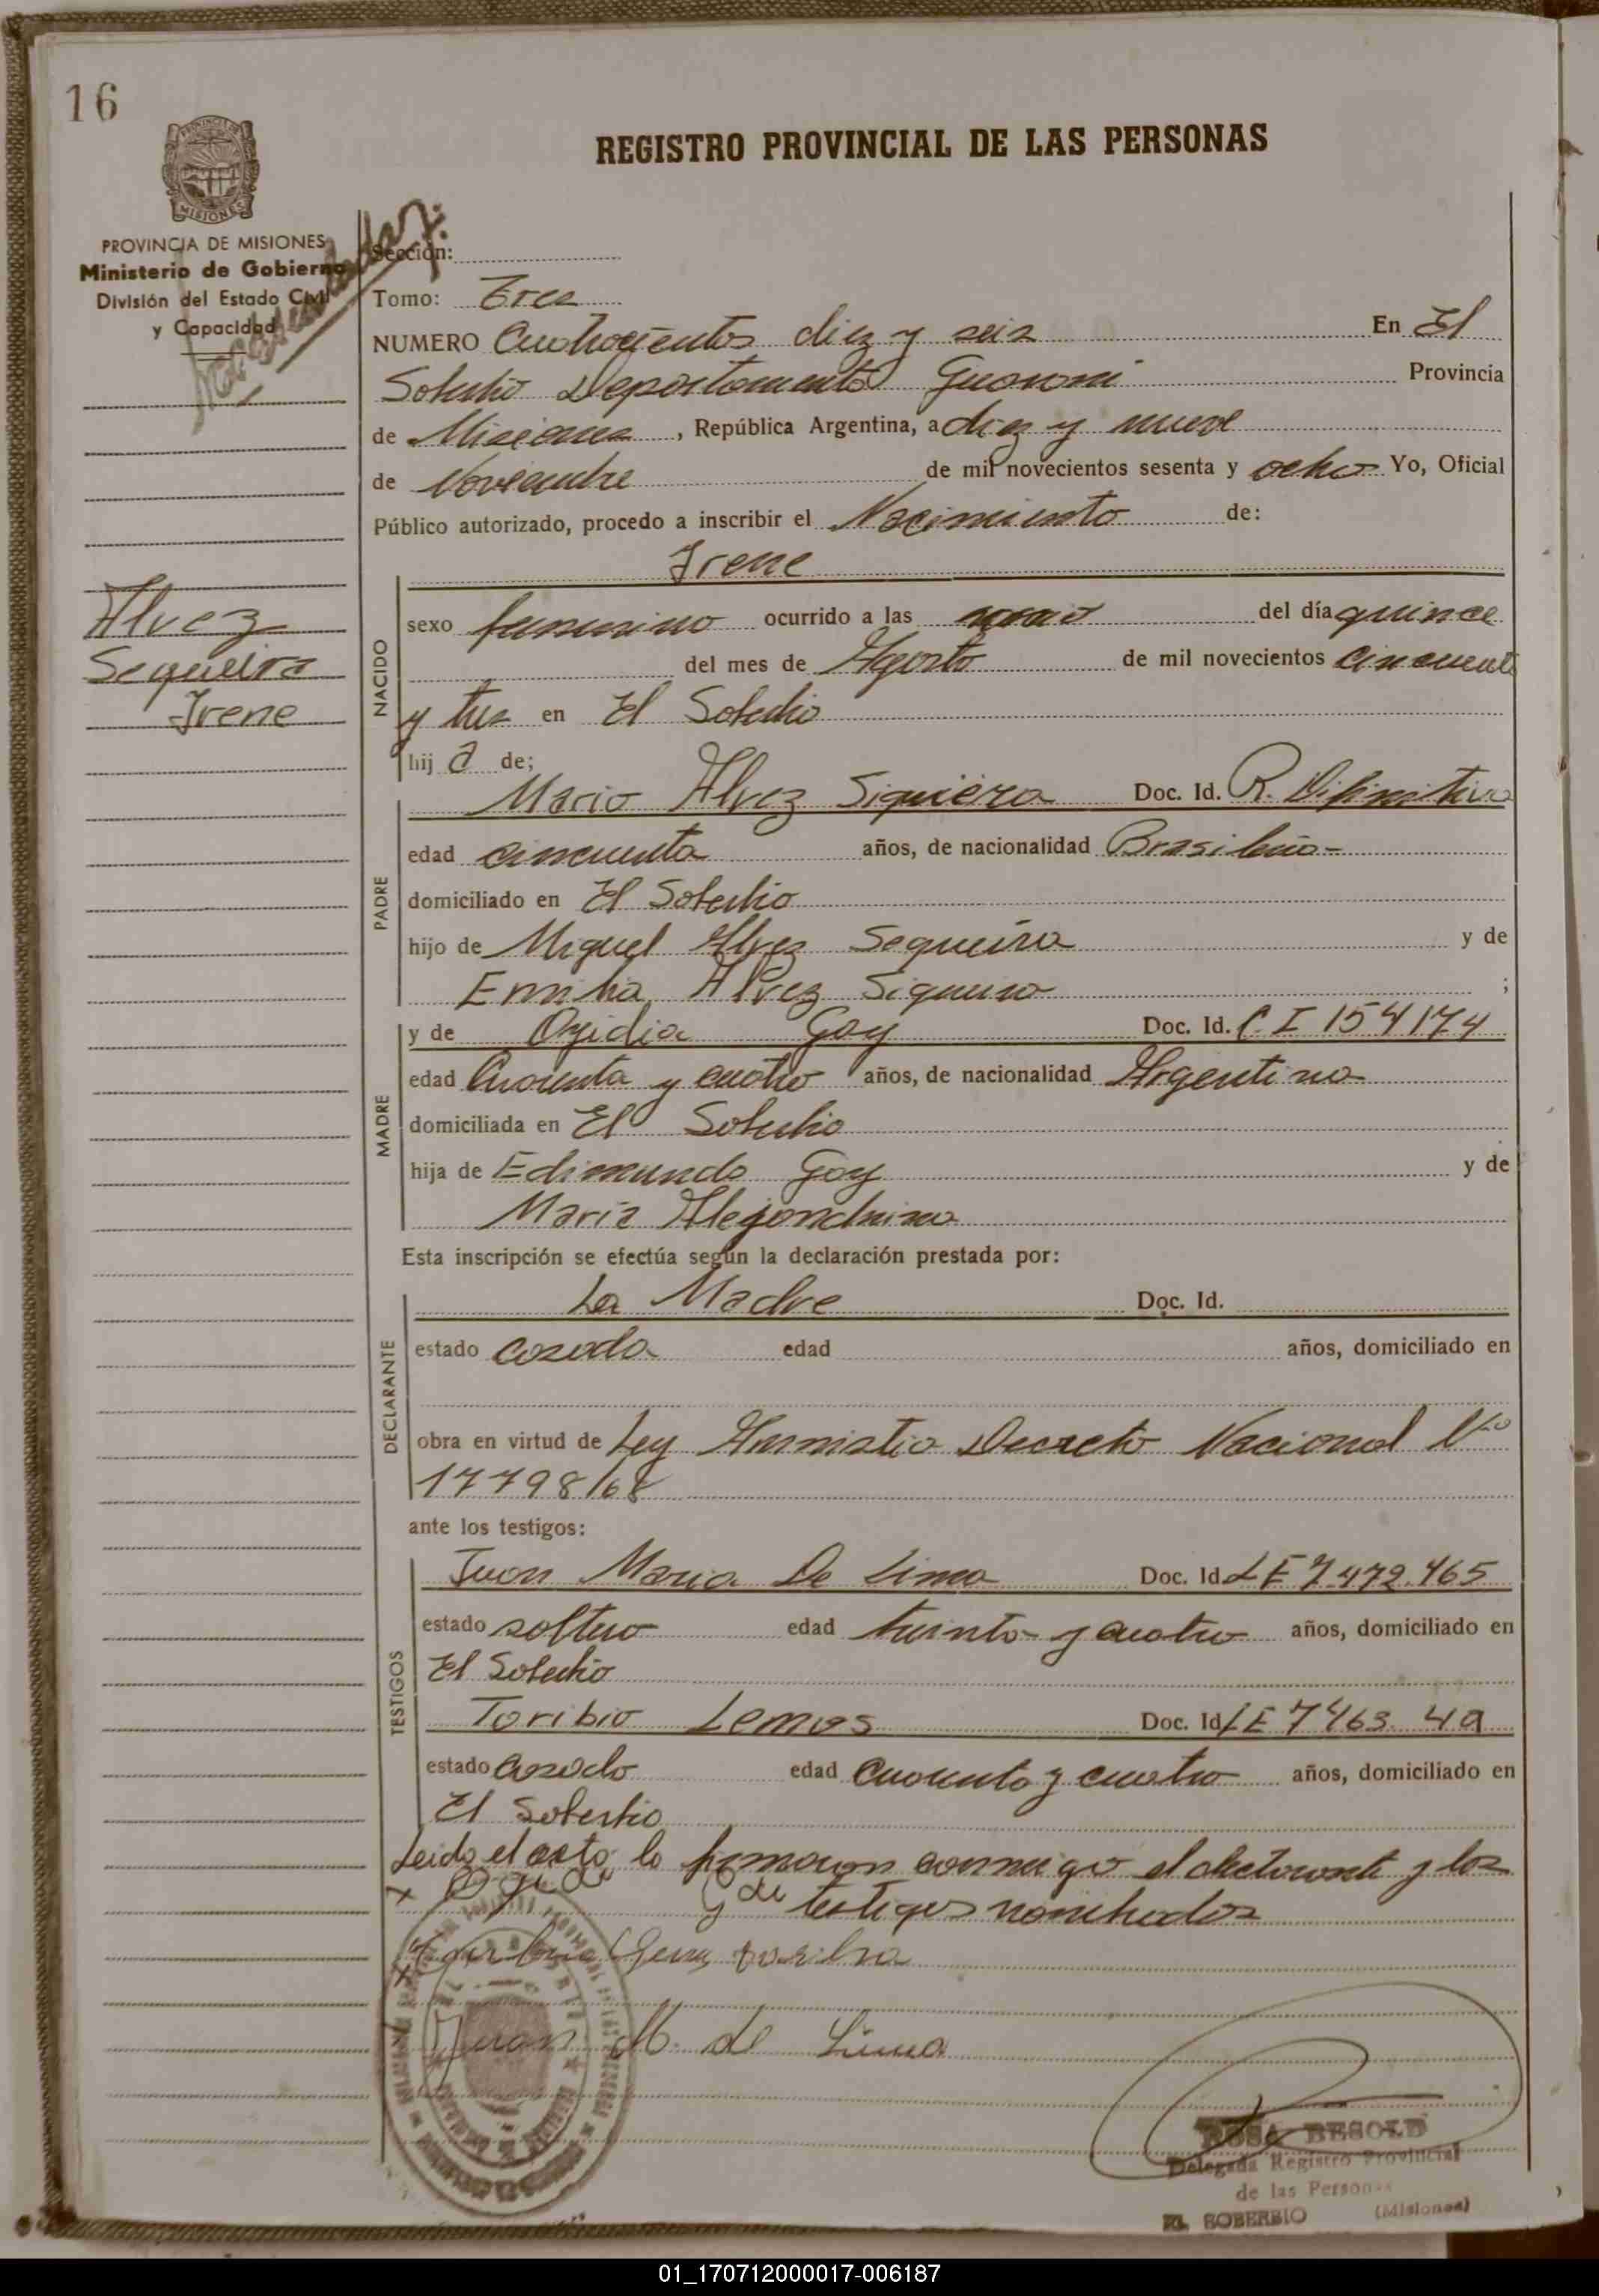 16
REGISTRO PROVINCIAL DE LAS PERSONAS
PROVINCIA DE MISIONES
Ministerio de Gobierno
División del Estado Civil
y Capacidad
Sección:
Tomo: Tres
NUMERO Cuatrocientos diez y seis En El
Soberbio Departamento Guaraní Provincia
de Misiones, República Argentina, a diez y nueve
de Noviembre de mil novecientos sesenta y ocho Yo, Oficial
Público autorizado, procedo a inscribir el Nacimiento de:
Irene
Alvez
Sequeira
Irene
NACIDO
sexo femenino ocurrido a las del día quince
del mes de Agosto de mil novecientos cincuenta
y tres en El Soberbio
hij a de;
PADRE
Mario Alvez Siqueira Doc. Id. R. Difinitiva
edad cincuenta años, de nacionalidad Brasileño-
domiciliado en El Soberbio
hijo de Miguel Alves Sequeira y de
Emilia Alvez Siqueira ;
MADRE
y de Goy Doc. Id. C. I 154174
edad Cuarenta y cuatro años, de nacionalidad Argentina
domiciliada en El Soberbio
hija de Edimundo Goy y de
Maria Alejandrina
Esta inscripción se efectúa según la declaración prestada por:
DECLARANTE
La Madre Doc. Id.
estado casada edad años, domiciliado en
obra en virtud de Ley Amnistia Decreto Nacional Nº
17798/68
ante los testigos:
TESTIGOS
Juan Maria De Lima Doc. Id. L E 7.472.465
estado soltero edad treinta y cuatro años, domiciliado en
El Soberbio
Toribio Lemos Doc. Id. L E 7463.49
estado casado edad cuarenta y cuatro años, domiciliado en
El Soberbio
Leido el acta lo firmaron conmigo el declarante y los
testigos nombrados
Juan M. de Lima
ROSA BESOLD
Delegada Registro Provincial
de las Personas
EL SOBERBIO (Misiones)
01_170712000017-006187